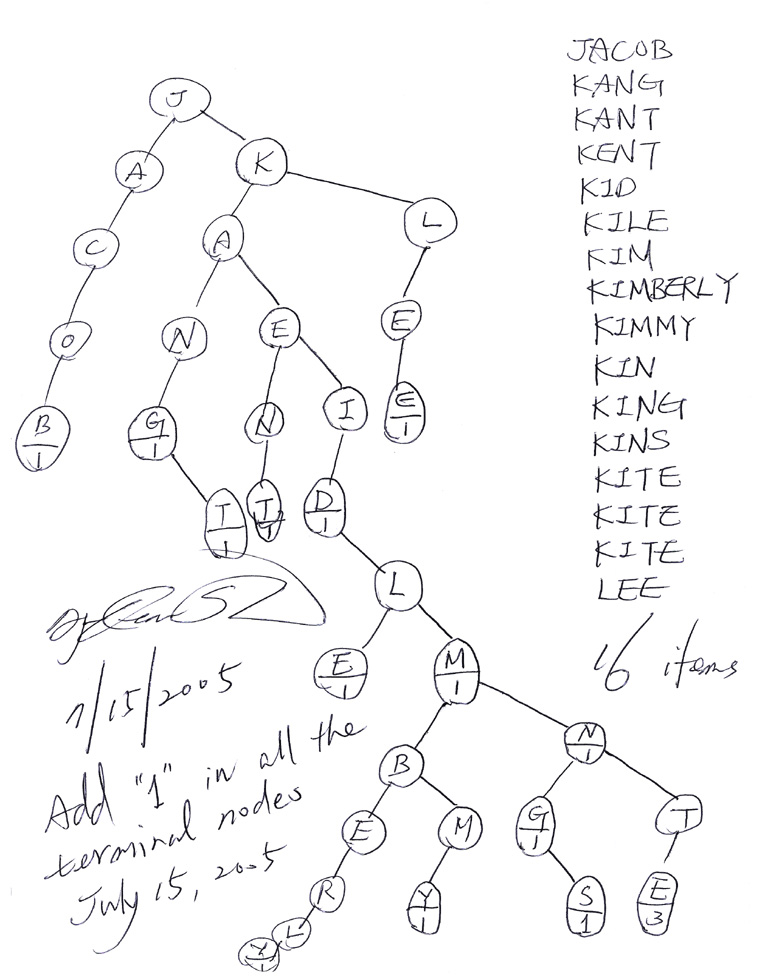 JACOB
KANG
KANT
KENT
KID
KILE
KIM
KIMBERLY
KIMMY
KIN
KING
KINS
KITE
KITE
KITE
LEE
16 items
J
A
K
C
A
L
O
N
E
E
B
1
G
1
N
I
E
1
T
1
T
1
D
1
L
E
1
M
1
B
N
1
E
M
G
1
T
R
Y
1
S
1
E
3
L
Y
1
7/15/2005
Add "1" in all the
terminal nodes
July 15, 2005